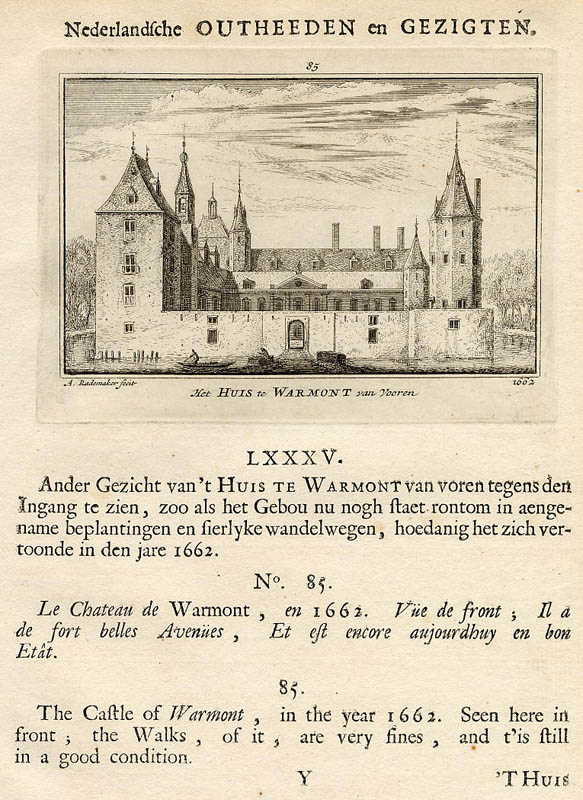 Nederlandſche OUTHEEDEN en GEZIGTEN.
85
A. Rademaker fecit
Het HUIS te WARMONT van Vooren
1662
LXXXV.
Ander Gezicht van 't HUIS TE WARMONT van voren tegens den
Ingang te zien, zoo als het Gebou nu nogh ſtaet rontom in aenge-
name beplantingen en ſierlyke wandelwegen, hoedanig het zich ver-
toonde in den jare 1662.
Nº. 85.
Le Chateau de Warmont, en 1662. Vüe de front; Il a
de fort belles Avenües, Et eſt encore aujourdhuy en bon
Etât.
85.
The Caſtle of Warmont, in the year 1662. Seen here in
front; the Walks, of it, are very fines, and t'is ſtill
in a good condition.
Y 'T HUIS